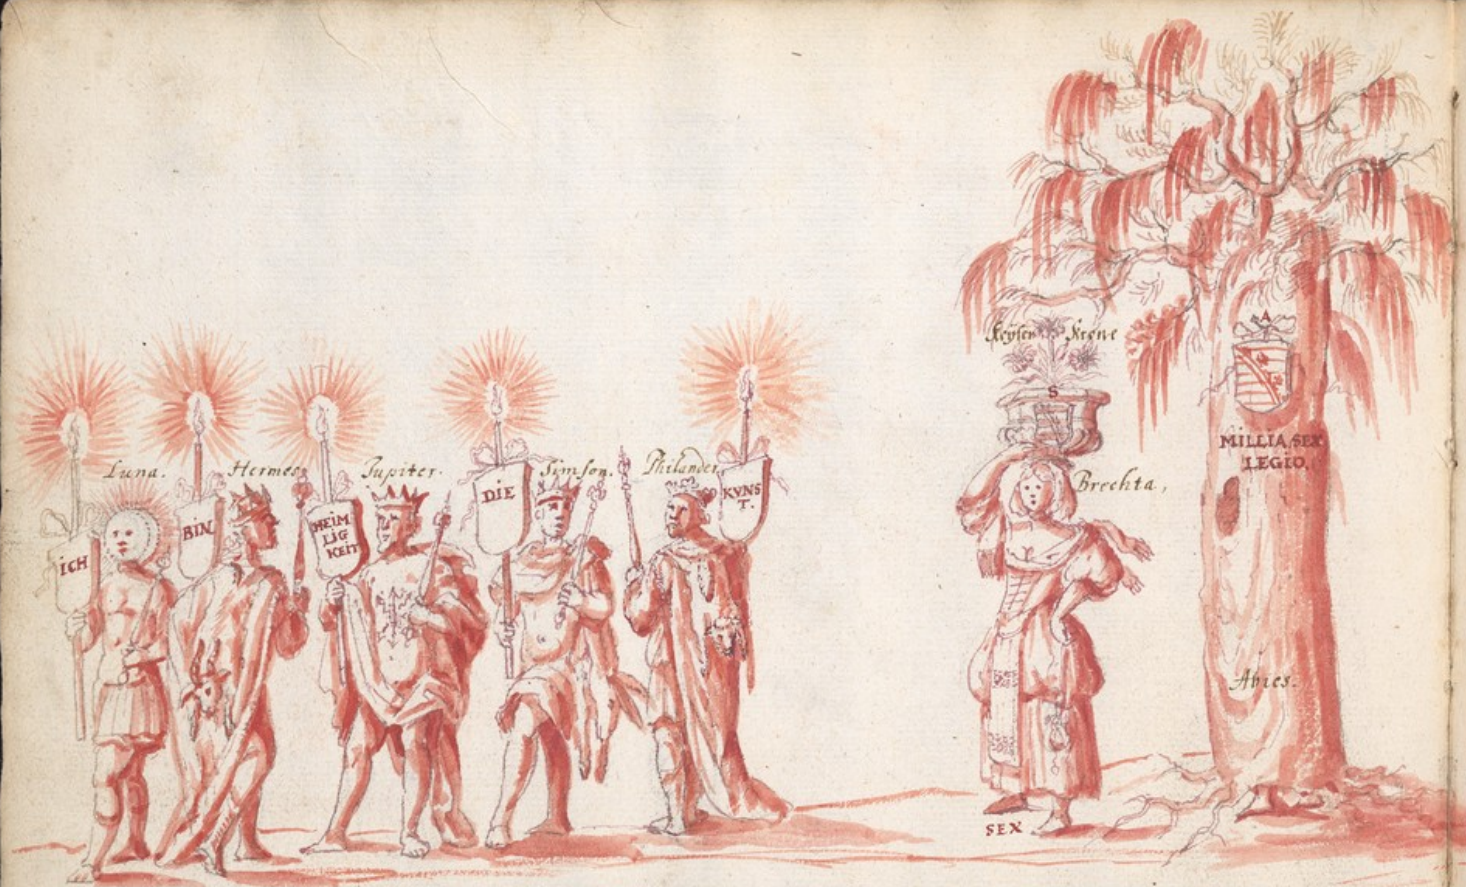 Luna.
Hermes
Jupiter.
Simson.
Philander
ICH
BIN
HEIM
LIG
KEIT
DIE
KVNS
T.
Keyser Krone
S
Brechta,
SEX
A
MILLIA SEX
LEGIO.
Abies.